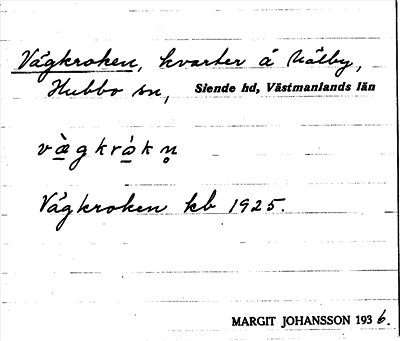 Vägkroken, kvarter å Målby,
Hubbo sn, Siende hd, Västmanlands län
vä̀gkrókn̥
Vägkroken kb 1925.
MARGIT JOHANSSON 1936.